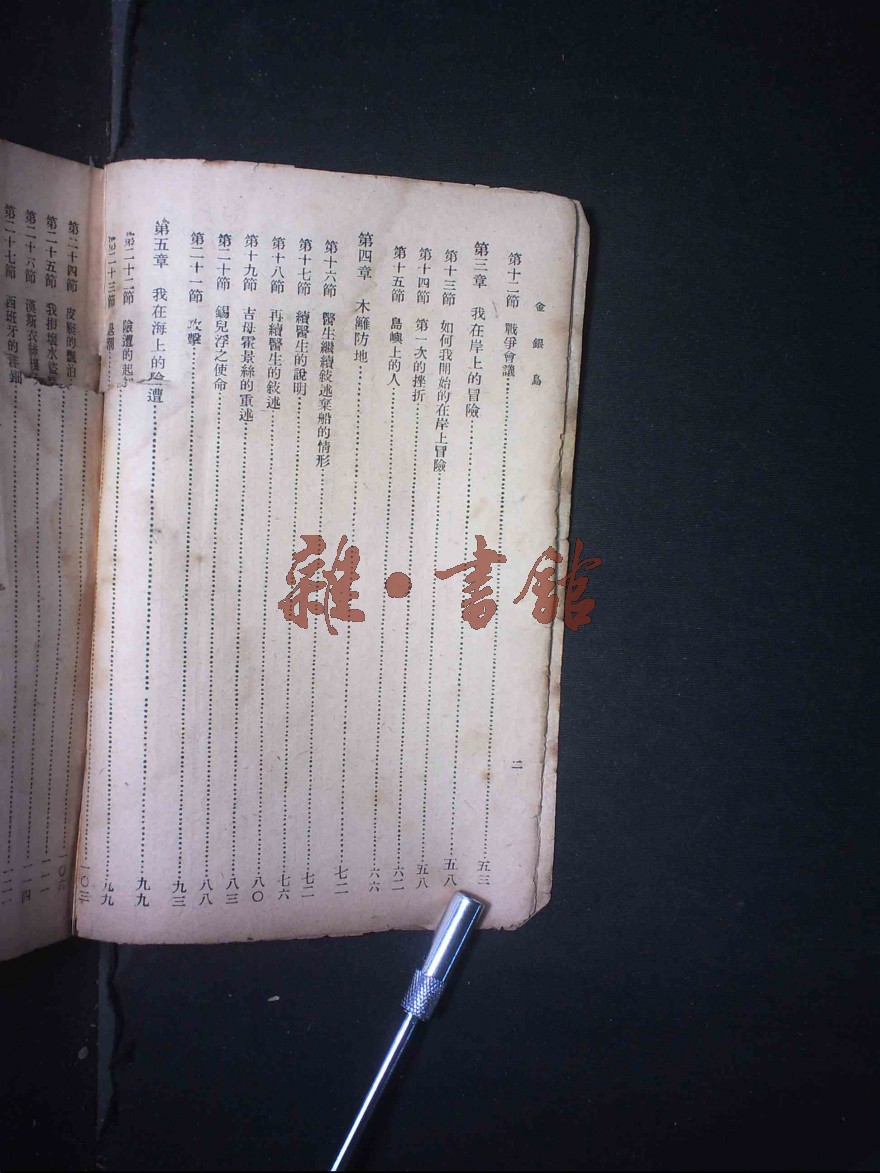 金銀島
二
第十二節 戰爭會議 五三
第三章 我在岸上的冒險 五八
第十三節 如何我開始的在岸上冒險 五八
第十四節 第一次的挫折 六二
第十五節 島嶼上的人 六六
第四章 木籬防地 七二
第十六節 醫生繼續敍述棄船的情形 七二
第十七節 續醫生的說明 七六
第十八節 再續醫生的敍述 八〇
第十九節 吉母霍景絲的重述 八三
第二十節 錫兒浮之使命 八八
第二十一節 攻擊 九三
第五章 我在海上的險遭 九九
第二十二節 險遭的起 九九
第二十三節 退潮 一〇三
第二十四節 皮艇的飄泊
第二十五節 我損壞水
第二十六節 漢斯衣絲
第二十七節 西班牙的
雜•書館